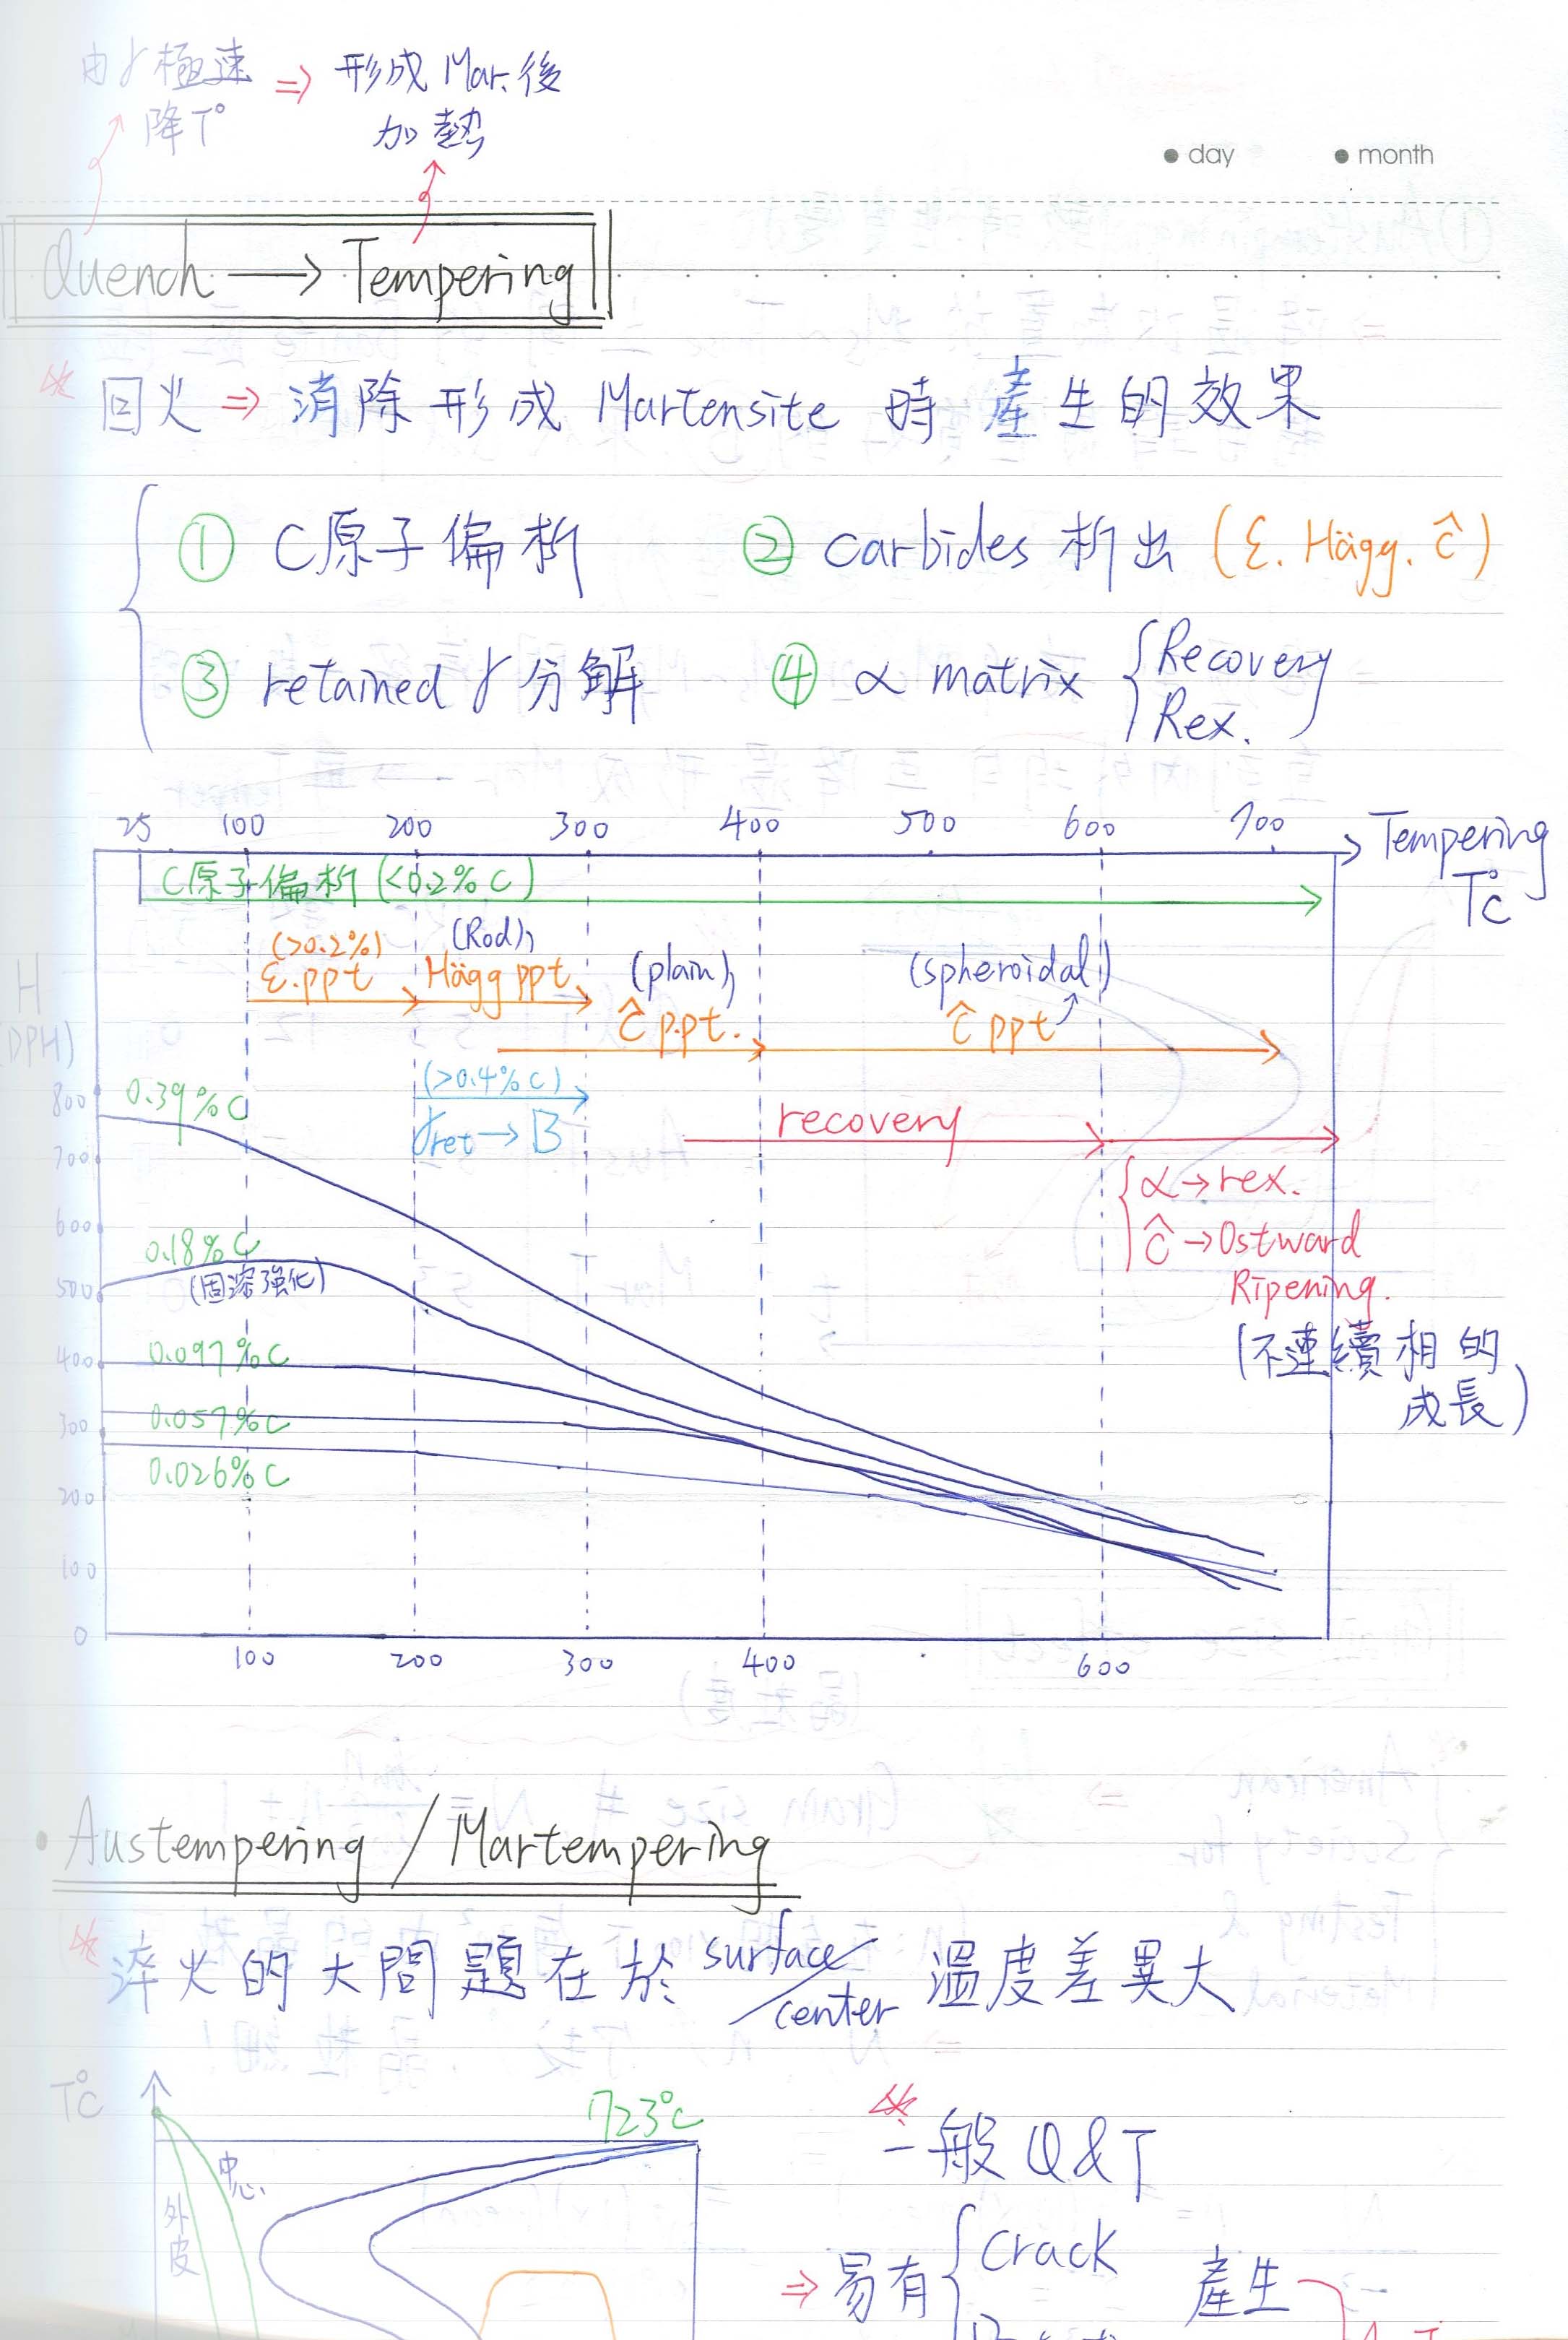 由γ極速 ⇒ 形成 Mar. 後
降T° 加熱
• day • month
Quench → Tempering
回火 ⇒ 消除形成 Martensite 時產生的效果
① C原子偏析 ② carbides 析出 (ε. Hägg. ĉ)
③ retained γ 分解 ④ α matrix { Recovery
Rex.
25 100 200 300 400 500 600 700 → Tempering
T°C
C原子偏析 (<0.2% C)
(>0.2%) (Rod) (plain) (spheroidal)
ε. ppt Hägg ppt ĉ p.pt. ĉ ppt
H
(DPH)
(>0.4% C)
γret → B
recovery
α → rex.
ĉ → Ostward
Ripening.
(不連續相的
成長)
800
700
600
500
400
300
200
100
0
0.39% C
0.18% C
(固溶強化)
0.097% C
0.057% C
0.026% C
100 200 300 400 600
• Austempering / Martempering
淬火的大問題在於 surface/center 溫度差異大
T°C
723°C
中心
外皮
一般 Q&T
⇒ 易有 { Crack 產生